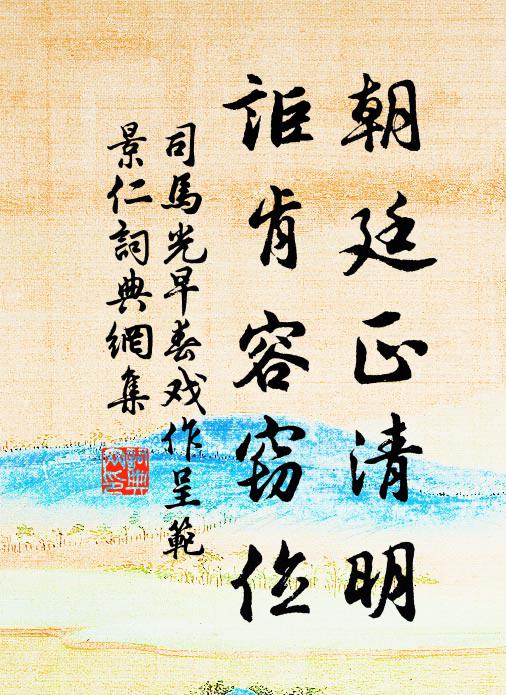 朝廷正清明
詎肯容窃位
司馬光早春戏作呈範
景仁詞典網集